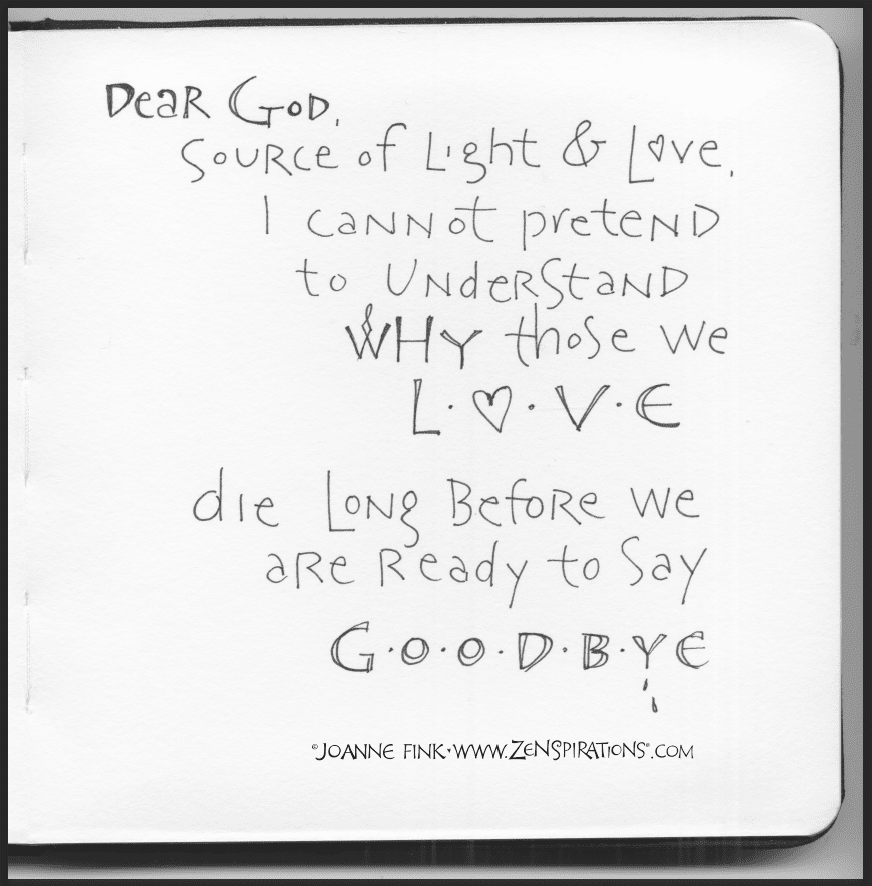 Dear God,
Source of Light & Love,
I cannot pretend
to understand
WHY those we
L·♡·V·E
die long before we
are ready to say
G·O·O·D·B·Y E
©JOANNE FINK·WWW.ZENSPIRATIONS®.COM